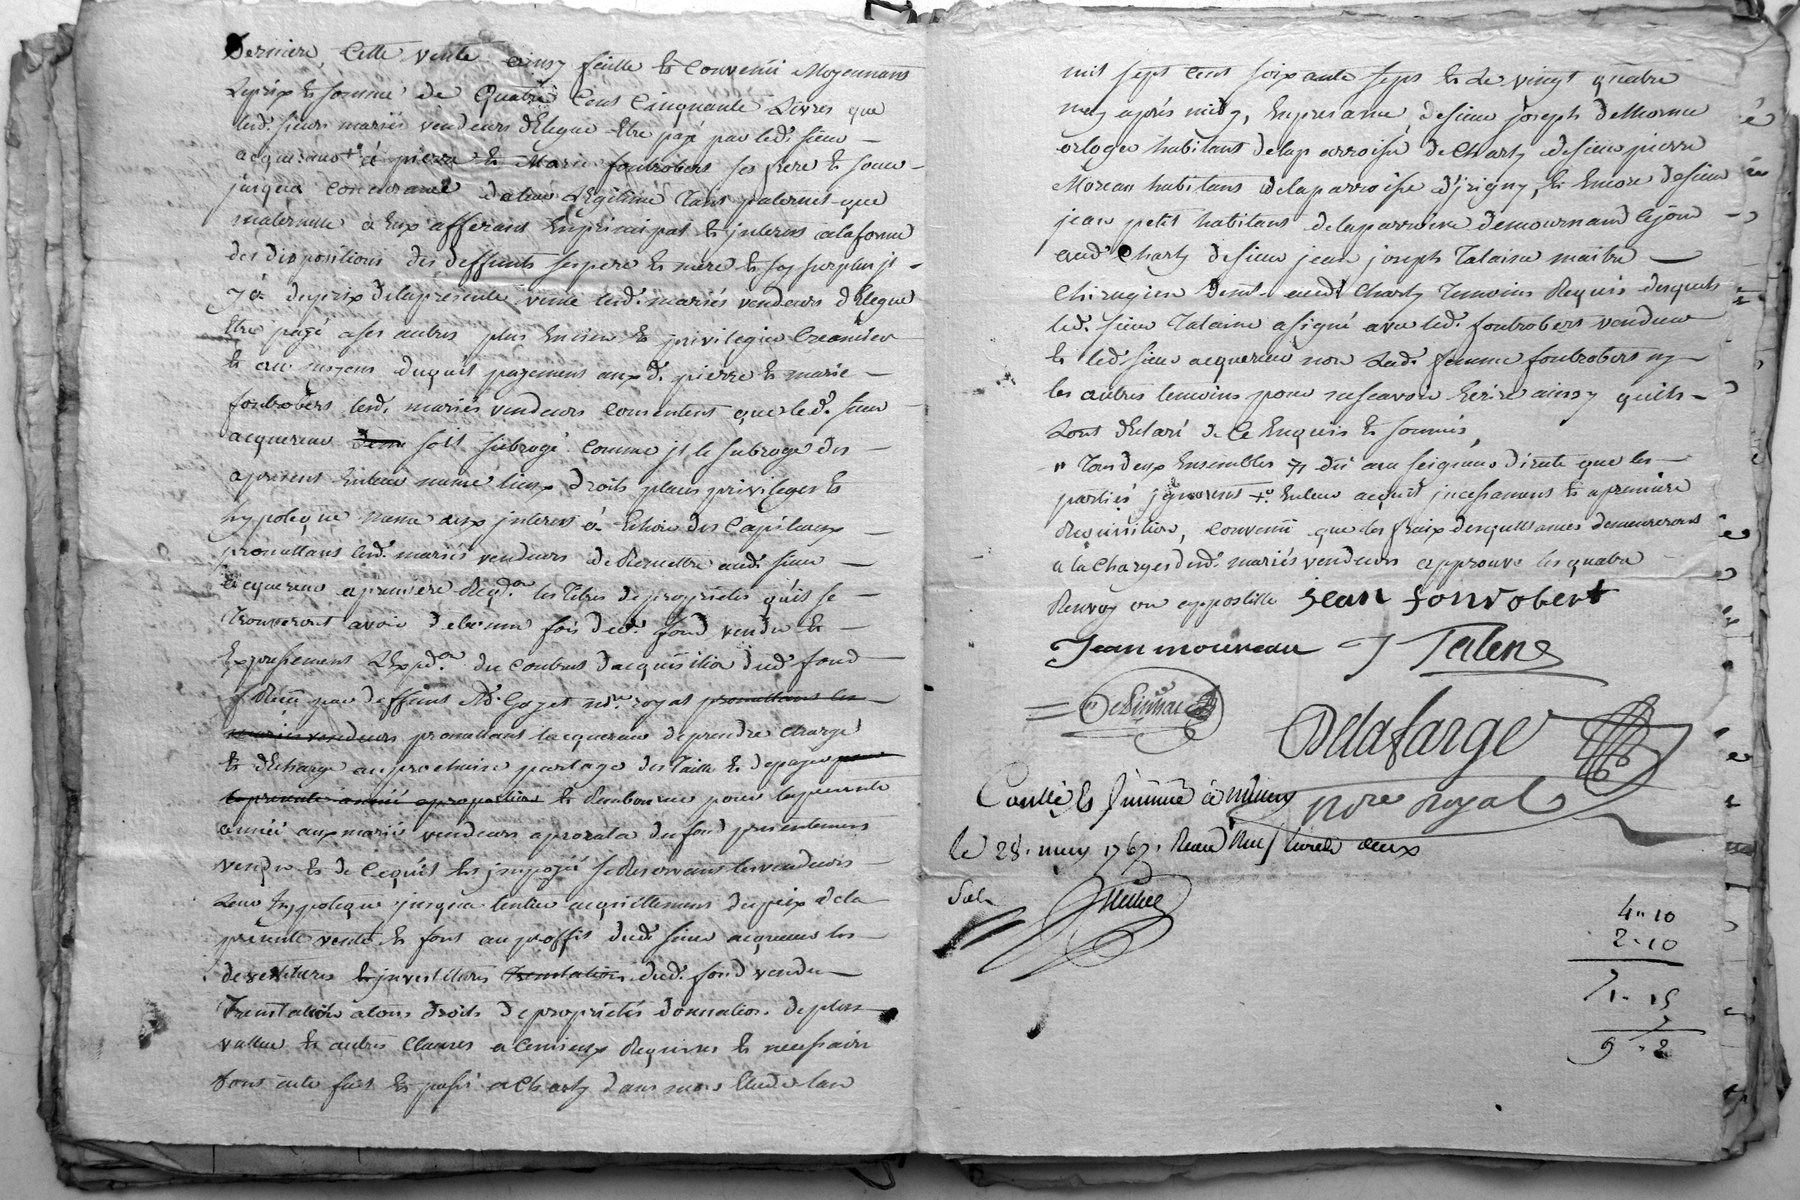 Derniere, Cette vente ainsy faitte Et Convenüe Moyennant
Leprix Et somme de Quatre Cent Cinquante Livres que
lesd. sieurs mariés vendeurs delegue Etre payé par led. sieur
acquereur a pierre Et Marie fontrobert ses frere Et soeur
jusqua concurance deleur Legitime Tant paternel que
maternelle a Eux afferant En principal Et interest alaforme
des dispositions des deffunts ses pere Et mere Et sy surplus il
y a duprix delapresente vente lesd. mariés vendeurs delegue
Etre payé a ses autres plus Enciens Et privilegies Creanciers
Et au moyens duquel payement auxd. pierre Et marie
fontrobert lesd. mariés vendeurs consentent que led. sieur
acquereur soit subrogé comme il le subroge des
apresent Enleur meme lieux droits places privileges Et
hypoteque meme aux interest a Echoir des Capitaux
promettant lesd. mariés vendeurs de Remettre aud. sieur
acquereur a premiere Reqon. les titres deproprietés quils se
trouveront avoir de bonne foi dud. fond vendu Et
Expressement Lexpdon. du contrat dacquisition dud. fond
Receu par deffunt Me. Goyet nore. royal promettant les
mariés vendeurs promettant lacquereur deprendre charge
Et decharge auprochaine partage des Taille Et depayer pour
la presente année aproportion Et Rembourser pour lapresente
année aux mariés vendeurs aprorata dufond presentement
vendu Et de Cequil Est imposé se Reservant les vendeurs
Leur hypoteque jusqua lentier acquittement du prix dela
presente vente Et font au proffit dud. sieur acquereur les
devestitures Et investitures translation dud. fond vendu
Translation atous droits de proprietés donnation de plus
vallue Et autres Clauses a Ceniceux Requises Et necessaire
dont acte fait Et passé a Charly dans mon Etude lan
mil sept cent soixante sept Et Le vingt quatre
may aprés midy, Enpresance de sieur joseph deMornu
orloger habitant de lap arroisse de Charly de sieur pierre
Moreau habitant delaparroisse d'irigny, Et Encore de sieur
jean petit habitant delaparroisse demournand Lejour
aud. Charly de sieur jean joseph Talaine maitre
Chirugien demt. aud. Charly Temoins Requis desquels
led. sieur Talaine a signé avec led. fontrobert vendeur
Et led. sieur acquereur non Lad. femme fontrobert ny
les autres temoins pour nescavoir Ecrire ainsy quils
Lont declaré de Ce Enquis Et sommés,
Tous deux Ensembles dit au seigneur directe que les
parties ignorent Enleur acquit incessament Et a premiere
Requisition, convenu que les fraix desquittances demeureront
a la Charges desd. mariés vendeurs approuvé les quatre
Renvoy en appostille jean fonrobert
Jean mouneau J Talene
Delafarge
nore Royal
Conllé Et fcintille à millery
Le 28. may 1767. Receu Neuf livres deux
sols
4 " 10
2 - 10
1 - 15
9 . 2